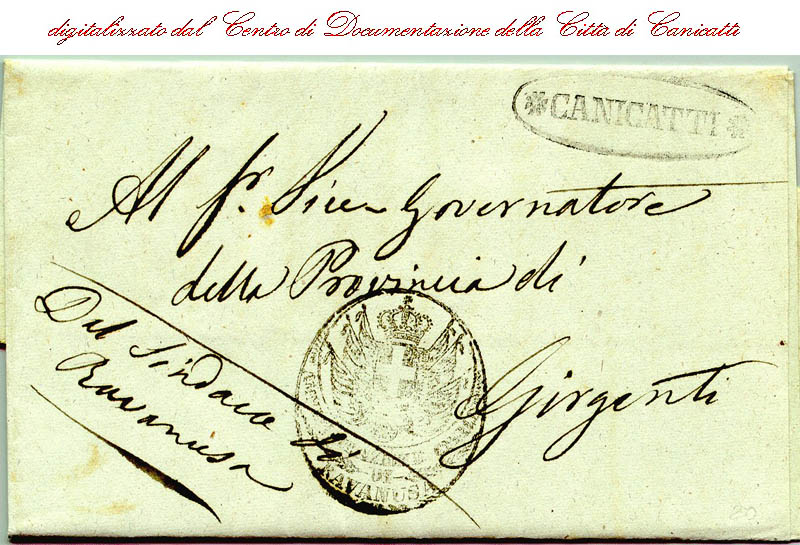 digitalizzato dal Centro di Documentazione della Città di Canicattì
CANICATTI
Al Sr. Vice Governatore
della Provincia di
Girgenti
Dal Sindaco di
Ravanusa
DI
RAVANUSA